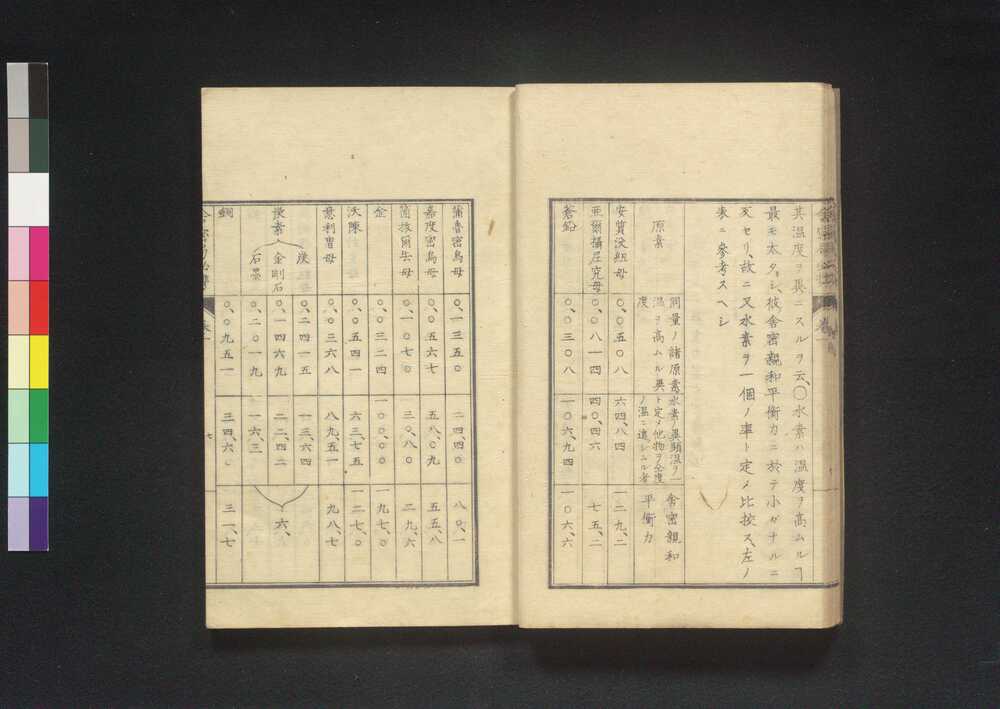 其温度ヲ異ニスルヲ云、〇水素ハ温度ヲ高ムルヿ
最モ太タシ、彼舎密親和平衡力ニ於テ小ガナルニ
反セリ、故ニ又水素ヲ一個ノ率ト定メ比挍ス、左ノ
表ニ參考スヘシ
原素
同量ノ諸原素温ヲ高ムル異度
水素ノ異類温ヲ一ト定メ他物ヲ仝度ノ温ニ進シムル者
舎密親和平衡力
安質没紐母 〇、〇五〇八 六四、八四 一二九、二
亜爾攝尼究母 〇、〇八一四 四〇、四六 七五、二
蒼鉛 〇、〇三〇八 一〇六、九四 一〇六、六
蒲魯密烏母 〇、一三五〇 二四、四〇 八〇、一
嘉度密烏母 〇、〇五六七 五八、〇九 五五、八
箇拔爾母 〇、一〇七〇 三〇、八〇 二九、六
金 〇、〇三二四 一〇〇、〇〇 一九七、〇
沃陳 〇、〇五四一 六三、七五 一二七、〇
意利曹母 〇、〇三六八 八九、五一 九八、七
炭素
煤 〇、二四一五 一三、六四
金剛石 〇、一四六九 二二、四二 六、
石墨 〇、二〇一九 一六、三
銅 〇、〇九五一 三四、六〇 三一、七
七